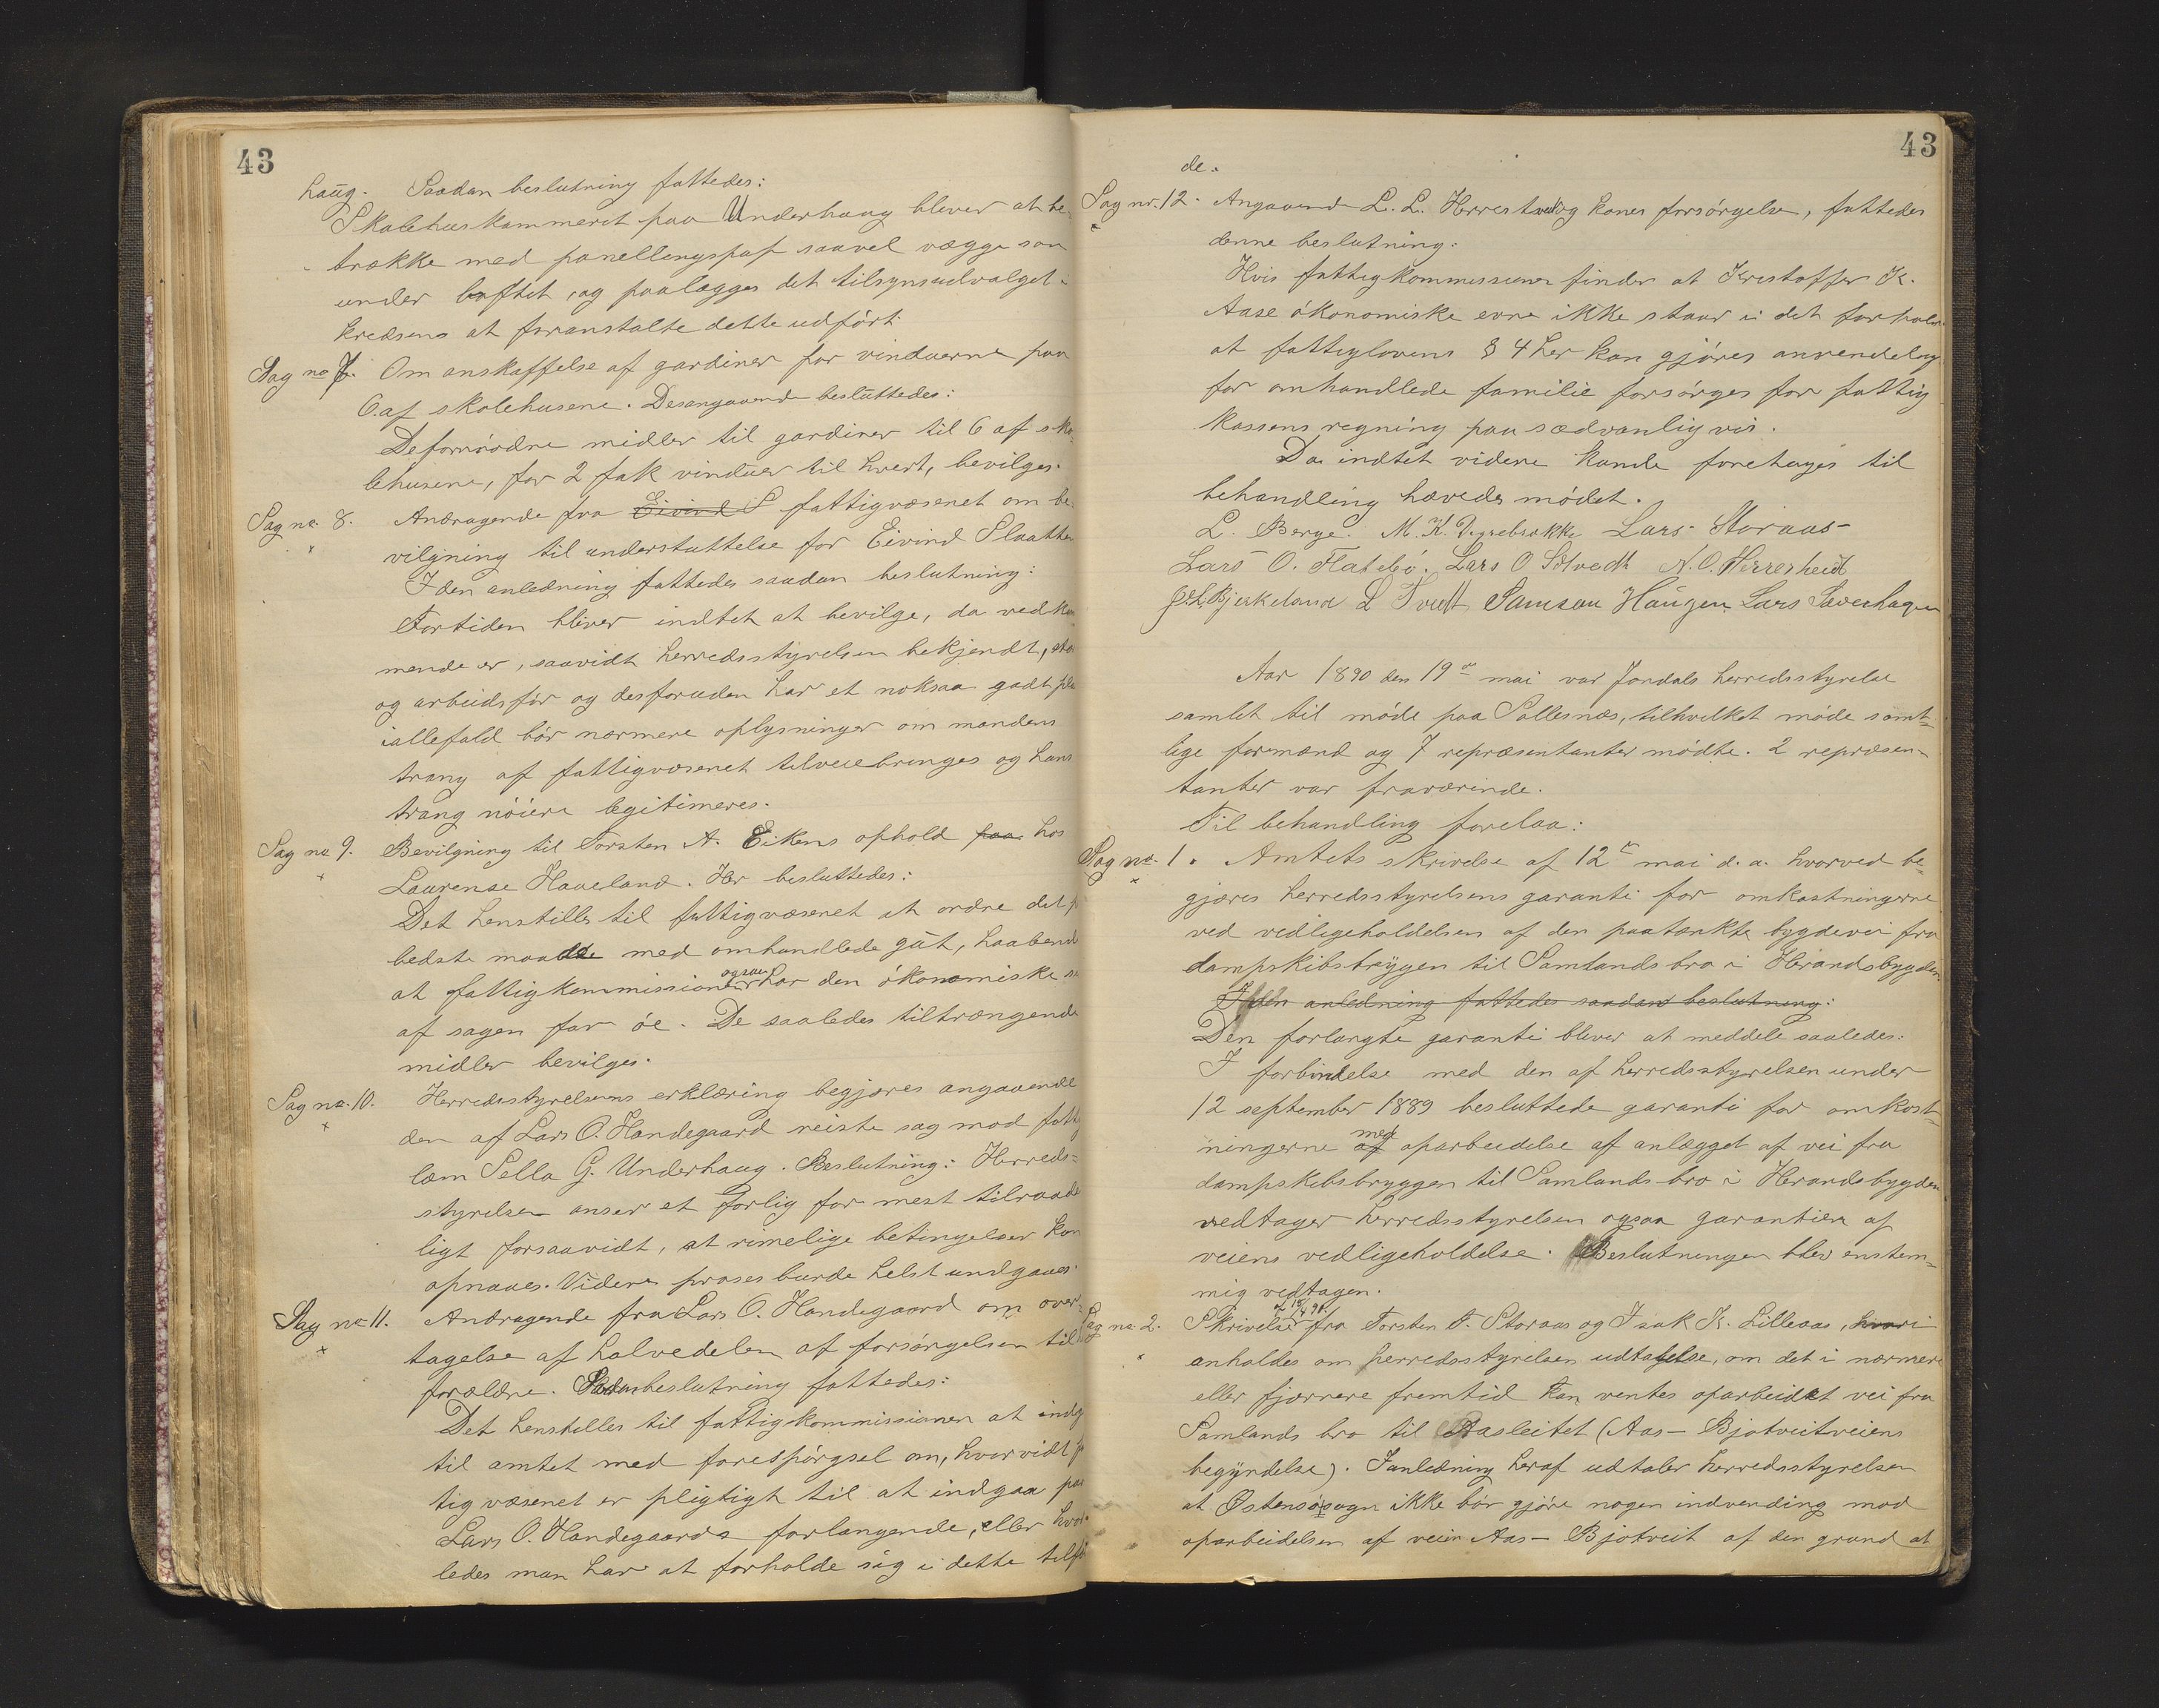 43
haug. Saadan beslutning fattedes:
Skolehuskammeret paa Underhaug bliver at be-
trække med panellingspap saavel vægge som
under loftet, og paalægges det tilsynsudvalget i
kredsens at foranstalte dette udført.
Sag no 7. Om anskaffelse af gardiner for vinduerne paa
6 af skolehusene. Desangaaende besluttedes:
De fornødne midler til gardiner til 6 af sko-
lehusene, for 2 fak vinduer til hvert, bevilges.
Sag no. 8. Andragende fra Eivind S fattigvæsenet om be-
vilgning til understøttelse for Eivind Slaatte
I den anledning fattedes saadan beslutning:
Fortiden bliver indtet at bevilge, da vedkom
mende er, saavidt herredsstyrelsen bekjendt,
og arbeidsfør og desforuden har et noksaa godt
iallefald bør nærmere oplysninger om mandens
trang af fattigvæsenet tilveiebringes og hans
trang nøiere legitimeres.
Sag no 9. Bevilgning til Torsten A. Eikens ophold paa hos
Laurense Haveland. Her besluttedes:
Det henstilles til fattigvæsenet at ordne det p
bedste maade med omhandlede gut, haabende
at fattigkommissionen ogsaa har den økonomiske
af sagen for øe. De saaledes tiltrængende
midler bevilges.
Sag no. 10. Herredsstyrelsens erklæring begjæres angaaende
den af Lars O. Handegaard reiste sag mod fattig
lem Pella G. Underhaug. Beslutning: Herreds-
styrelsen anser et forlig for mest tilraade
ligt forsaavidt, at rimelige betingelser kan
opnaaes. Videre proses burde helst undgaaes.
Sag no 11. Andragende fra Lars O. Handegaard om over-
tagelse af halvedelen af forsørgelsen til
forældre. Sadan beslutning fattedes:
Det henstilles til fattigkommissionen at indg
til amtet med forespørgsel om, hvorvidt
tigvæsenet er pligtigt til at indgaa paa
Lars O. Handegaards forlangende, eller hvor-
ledes man har at forholde sig i dette tilfæ
43
de.
Sag nr. 12. Angaaende L. L. Herrestvedt og kones forsørgelse, fattedes
denne beslutning:
Hvis fattigkommissionen finder at Kristoffer K.
Aase økonomiske evne ikke staar i det forhold
at fattiglovens § 4 her kan gjøres anvendelig
for omhandlede familie forsørges for fattig
kassens regning paa sædvanlig vis.
Da indtet videre kunde foretages til
behandling hævedes mødet.
L. Berge. M. K. Lars Storaas
Lars O. Flatebø. Lars O Solvedt N. O. Herrerheid
Bjerkeland L Tvedt Samson Haugen Lars Sæverhagen
Aar 1890 den 19de mai var Jondals herredsstyrelse
samlet til møde paa Sollesnæs, tilhvilket møde samt-
lige formænd og 7 repræsentanter mødte. 2 repræsen-
tanter var fraværinde.
Til behandling forelaa:
Sag no. 1. Amtets skrivelse af 12te mai d. a. hvorved be-
gjæres herredsstyrelsens garanti for omkostningerne
ved vedligeholdelsen af den paatænkte bygdevei fra
dampskibsbryggen til Samlands bro i Herandsbygden
I den anledning fattedes saadan beslutning:
Den forlangte garanti bliver at meddele saaledes:
I forbindelse med den af herredsstyrelsen under
12 september 1889 besluttede garanti for omkost-
ningerne af med oparbeidelse af anlægget af vei fra
dampskibsbryggen til Samlands bro i Herandsbygden
vedtager herredsstyrelsen ogsaa garantien af
veiens vedligeholdelse. Beslutningen blev enstem-
mig vedtagen.
Sag no. 2. Skrivelse af 15/4 90. fra Torsten T. Storaas og Isak K. Lilleaas, hvori
anholdes om herredsstyrelsen udtalelse, om det i nærmere
eller fjærnere fremtid kan ventes oparbeidet vei fra
Samlands bro til Aasleitet (Aas - Bjotveitveiens
begyndelse). I anledning heraf udtaler herredsstyrelsen
at Østensøsogn ikke bør gjøre nogen indvending mod
oparbeidelsen af veien Aas - Bjotveit af den grund at